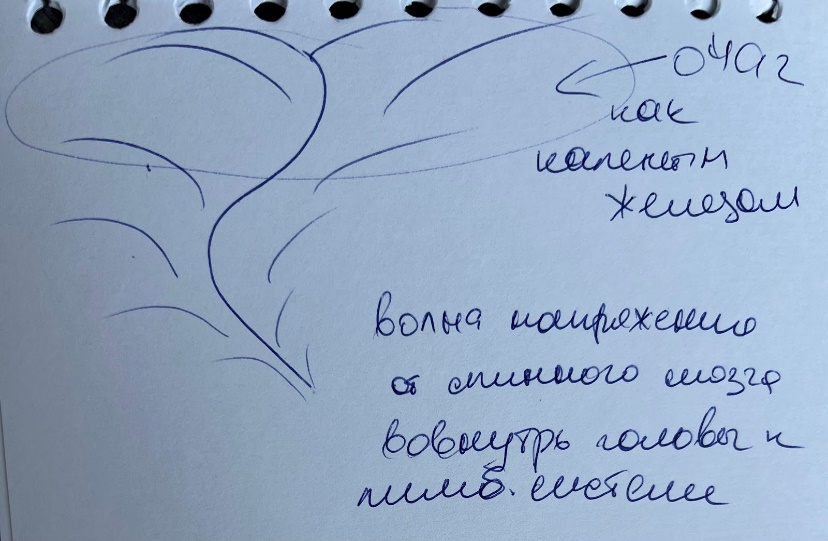 очаг
как
каленым
железом
волна напряжения
от спинного мозга
вовнутрь головы к
лимб. системе